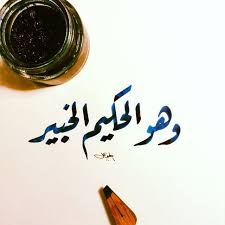 وهو الحكيم الخبير